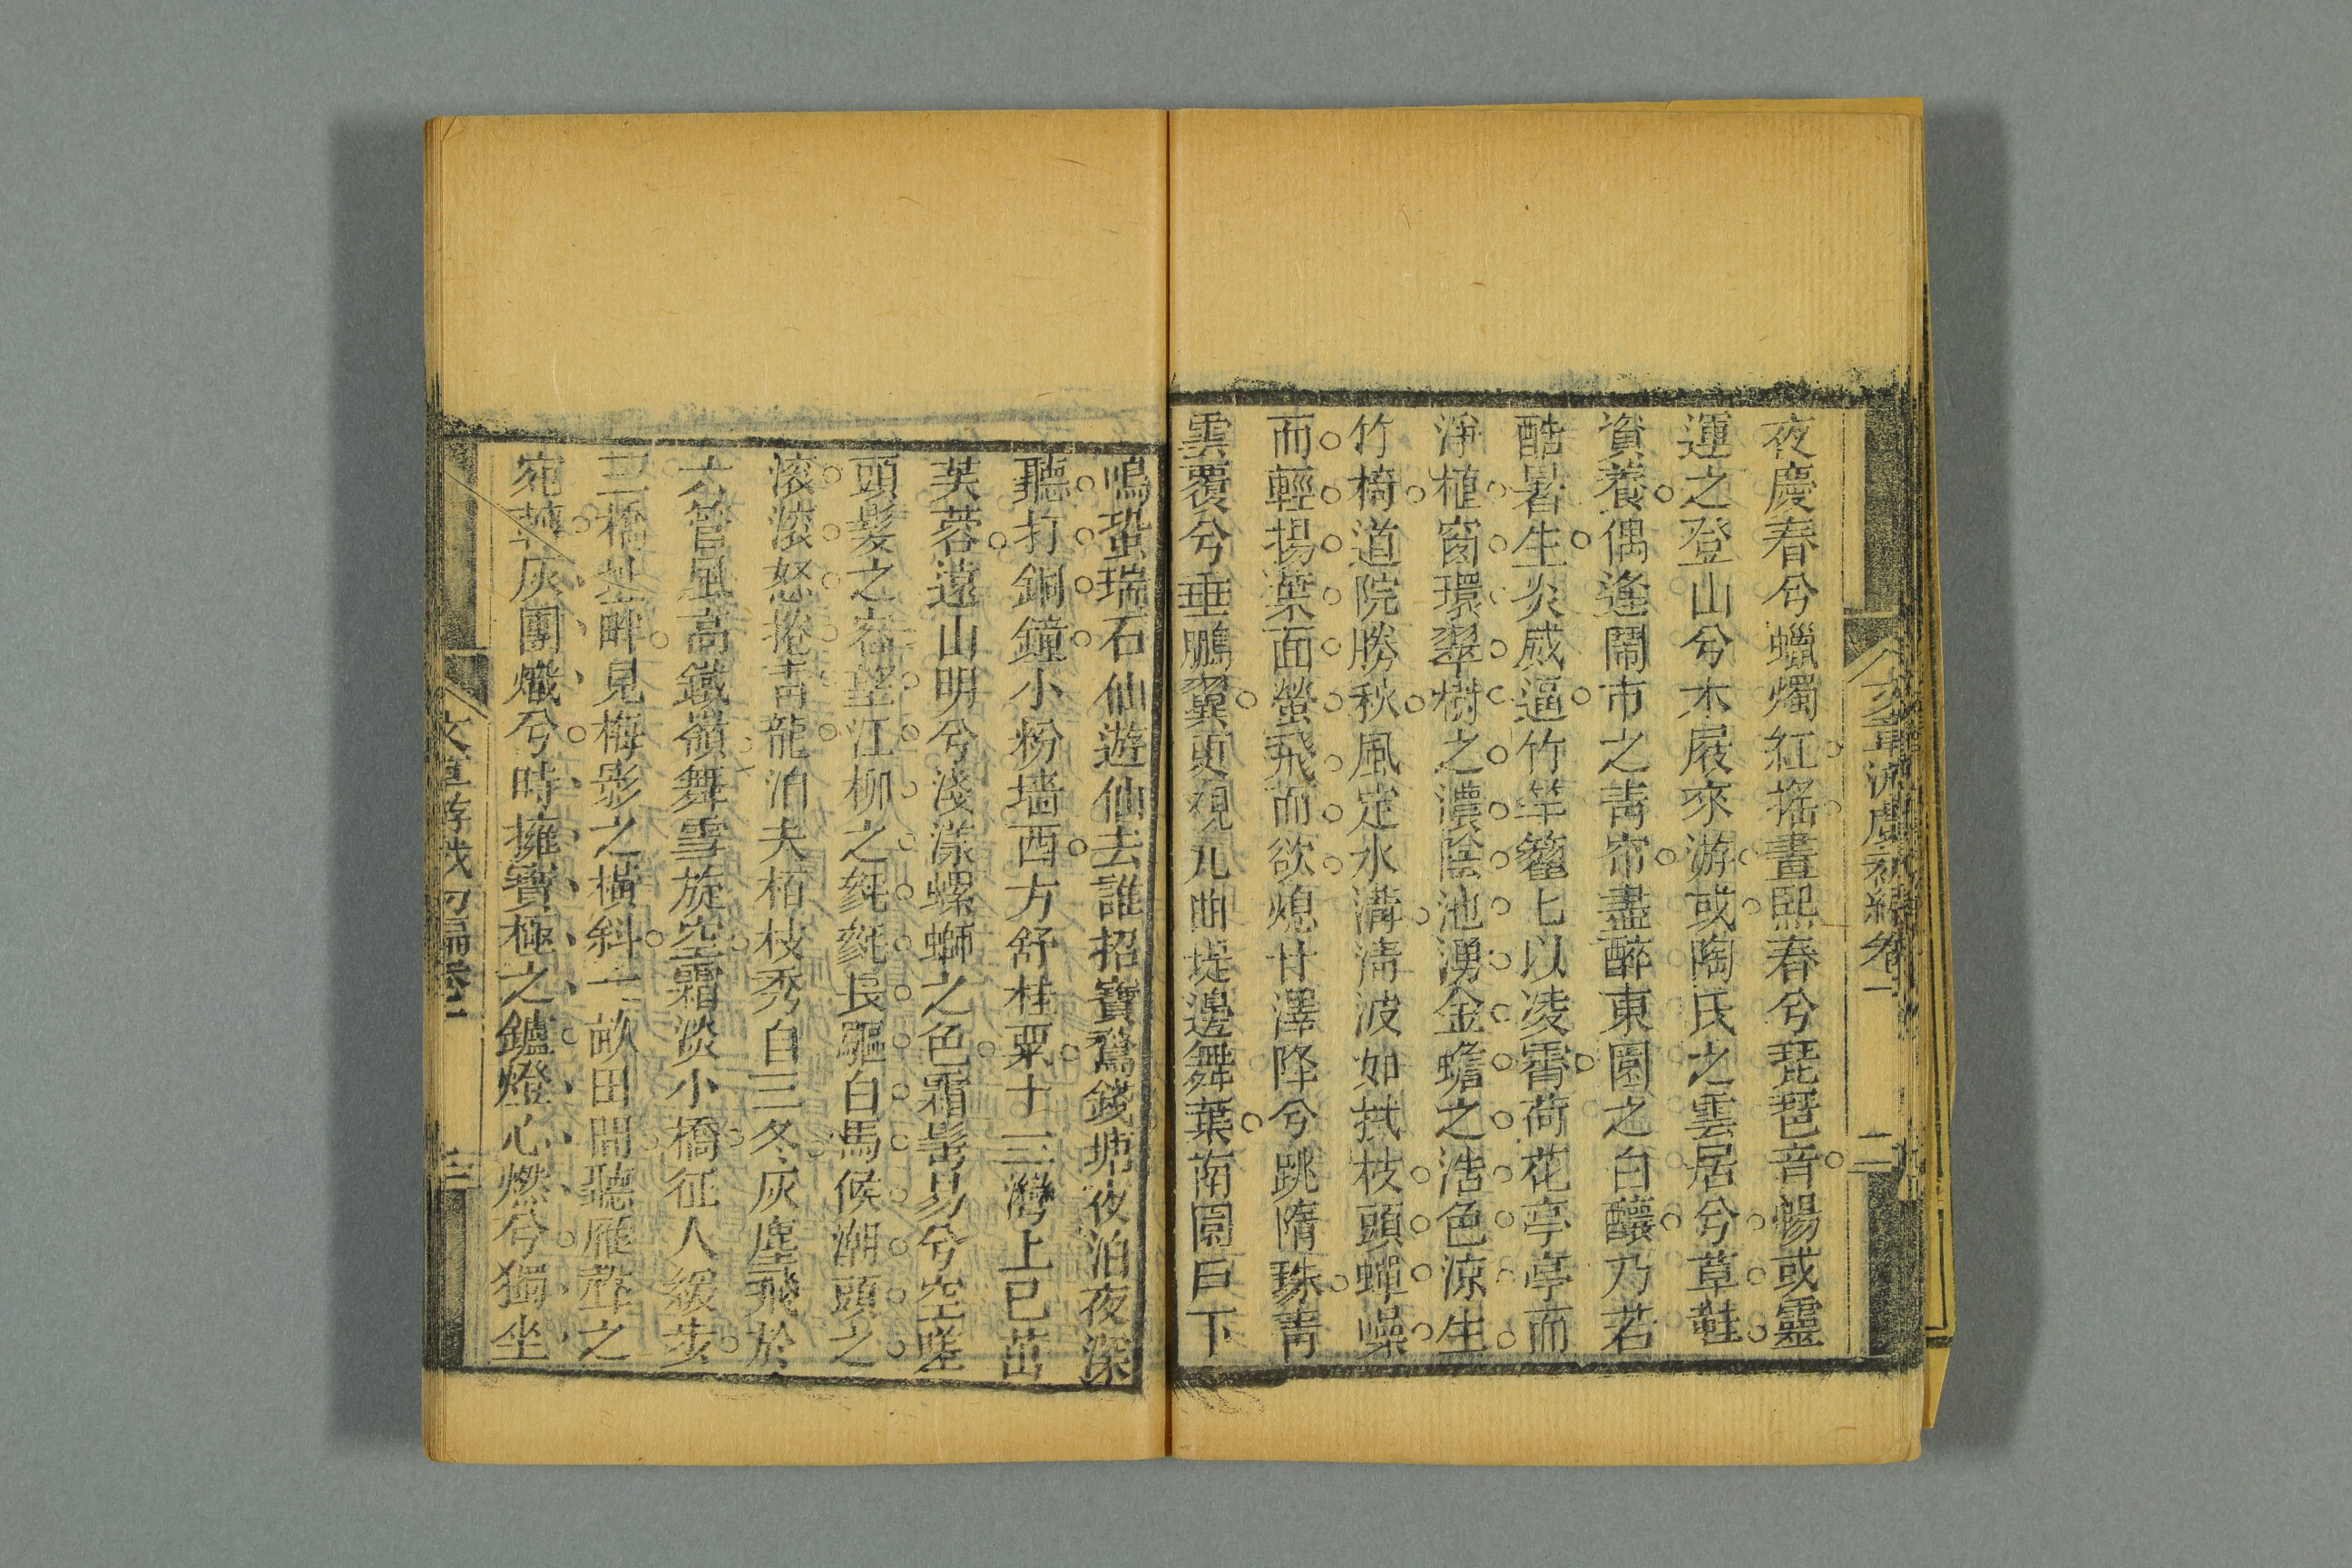 夜慶春兮蠟燭紅搖晝熙春兮琵琶音暢或靈
運之登山兮木屐來游或陶氏之雲居兮草鞋
資養偶逢鬧市之靑帘盡醉東園之白釀乃若
酷暑生炎威逼竹竿籊七以凌霄荷花亭亭而
淨植窗環翠樹之濃陰池湧金蟾之浩色涼生
竹椅道院勝秋風定水溝淸波如拭枝頭蟬噪
而輕揚葉面螢飛而欲熄甘澤降兮跳隋珠靑
雲覆兮垂鵬翼更觀九曲堤邊舞葉南園戶下
鳴蛩瑞石仙遊仙去誰招寶鶩錢塘夜泊夜深
聽打銅鐘小粉墻西方舒桂粟十三灣上已茁
芙蓉遠山明兮淺漾螺螄之色霜髩易兮空嗟
頭髮之容望江柳之毿毿長驅白馬候潮頭之
滚滚怒捲靑龍泊夫栢枝秀自三冬灰塵飛於
六管風高鐵嶺舞雪旋空霜淡小橋征人緩步
三橋址畔見梅影之橫斜二畝田間聽雁聲之
宛轉灰團熾兮時擁寶極之鑪燈心燃兮獨坐
文章游戲初編卷一
二
文章游戲初編卷一
三